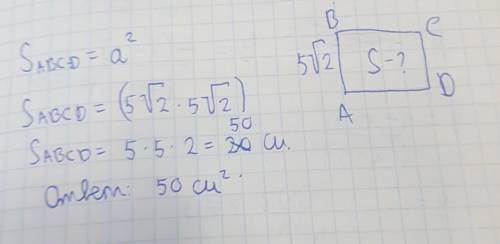 S ABCD = a²
S ABCD = (5√2 · 5√2)
S ABCD = 5 · 5 · 2 = 50 си.
Ответ: 50 см².
B C
5√2 S-?
A D